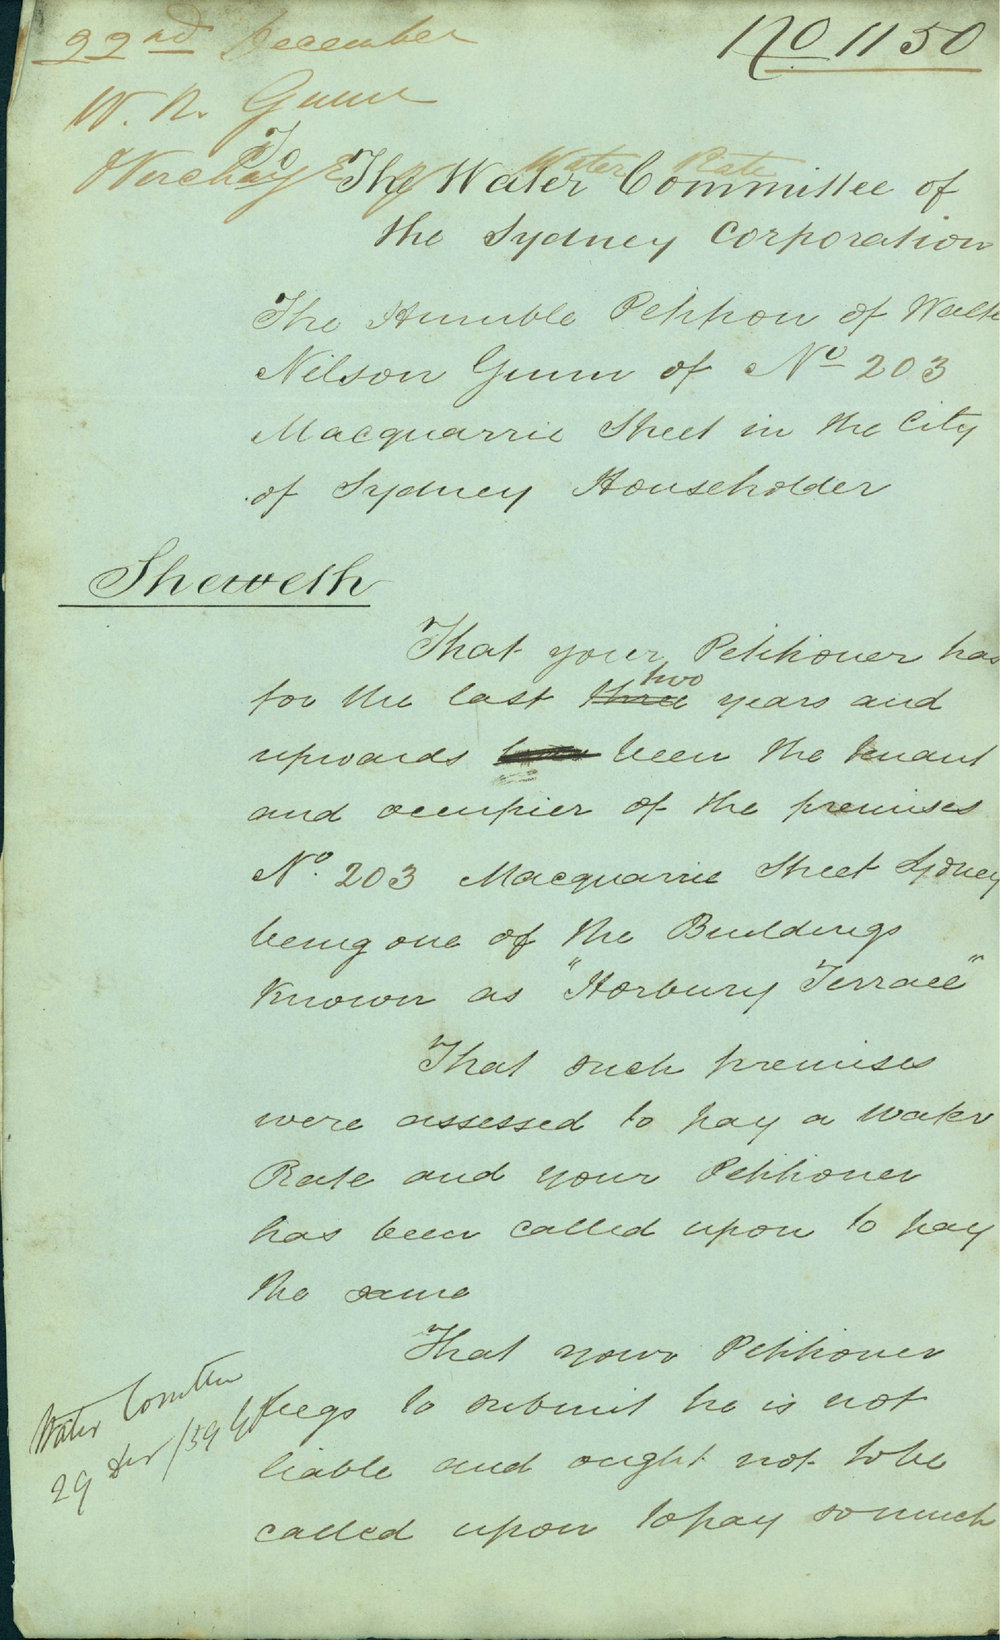 22nd December
No 1150
W. N. Gunn
Water Rate
To
The Water Committee of
the Sydney Corporation
The Humble Petition of Walte
Nilson Gunn of No 203
Macquarrie Street in the City
of Sydney Householder
Sheweth
That your Petitioner has
for the last three two years and
upwards been the tenant
and occupier of the premises
No. 203 Macquarrie Street Sydney
being one of the Buildings
known as "Horbury Terrace"
That such premises
were assessed to pay a Water
Rate and your Petitioner
has been called upon to pay
the same
That your Petitioner
begs to submit he is not
liable and ought not to be
called upon to pay so much
Water Comttee
29 Decr /59